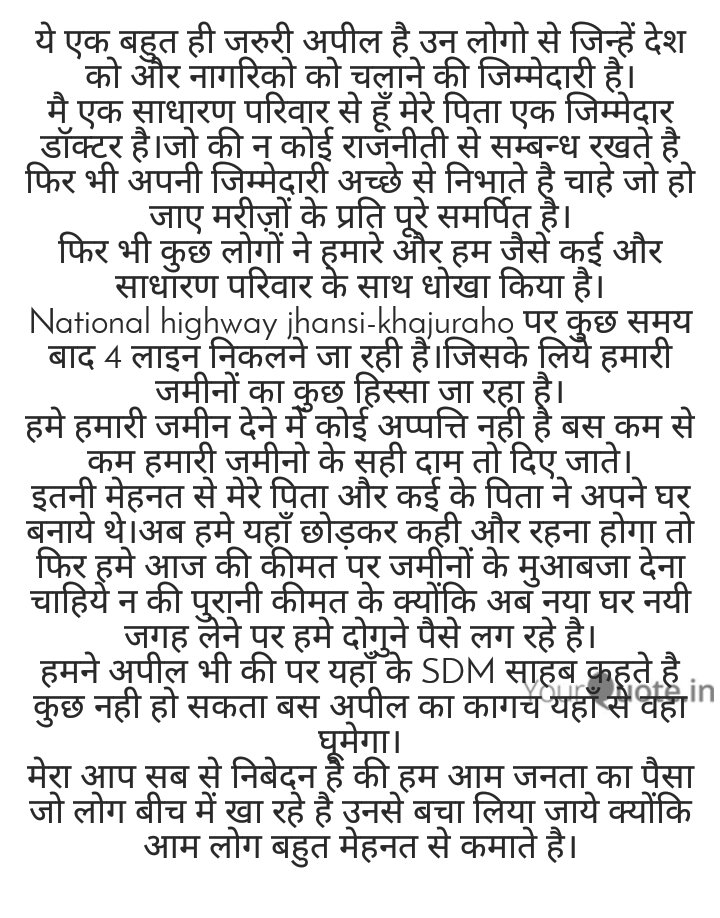 ये एक बहुत ही जरुरी अपील है उन लोगो से जिन्हें देश
को और नागरिको को चलाने की जिम्मेदारी है।
मै एक साधारण परिवार से हूँ मेरे पिता एक जिम्मेदार
डॉक्टर है।जो की न कोई राजनीती से सम्बन्ध रखते है
फिर भी अपनी जिम्मेदारी अच्छे से निभाते है चाहे जो हो
जाए मरीज़ों के प्रति पूरे समर्पित है।
फिर भी कुछ लोगों ने हमारे और हम जैसे कई और
साधारण परिवार के साथ धोखा किया है।
National highway jhansi-khajuraho पर कुछ समय
बाद 4 लाइन निकलने जा रही है।जिसके लिये हमारी
जमीनों का कुछ हिस्सा जा रहा है।
हमे हमारी जमीन देने में कोई अप्पत्ति नही है बस कम से
कम हमारी जमीनो के सही दाम तो दिए जाते।
इतनी मेहनत से मेरे पिता और कई के पिता ने अपने घर
बनाये थे।अब हमे यहाँ छोड़कर कही और रहना होगा तो
फिर हमे आज की कीमत पर जमीनों के मुआबजा देना
चाहिये न की पुरानी कीमत के क्योंकि अब नया घर नयी
जगह लेने पर हमे दोगुने पैसे लग रहे है।
हमने अपील भी की पर यहाँ के SDM साहब कहते है
कुछ नही हो सकता बस अपील का कागच यहाँ से वहा
घूमेगा।
मेरा आप सब से निबेदन है की हम आम जनता का पैसा
जो लोग बीच में खा रहे है उनसे बचा लिया जाये क्योंकि
आम लोग बहुत मेहनत से कमाते है।
YourQuote.in